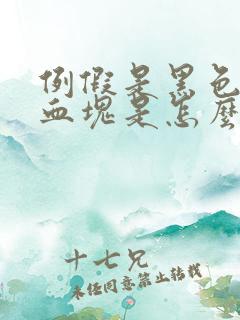 例假是黑色
血塊是怎麼
十七兄
未经同意禁止转载